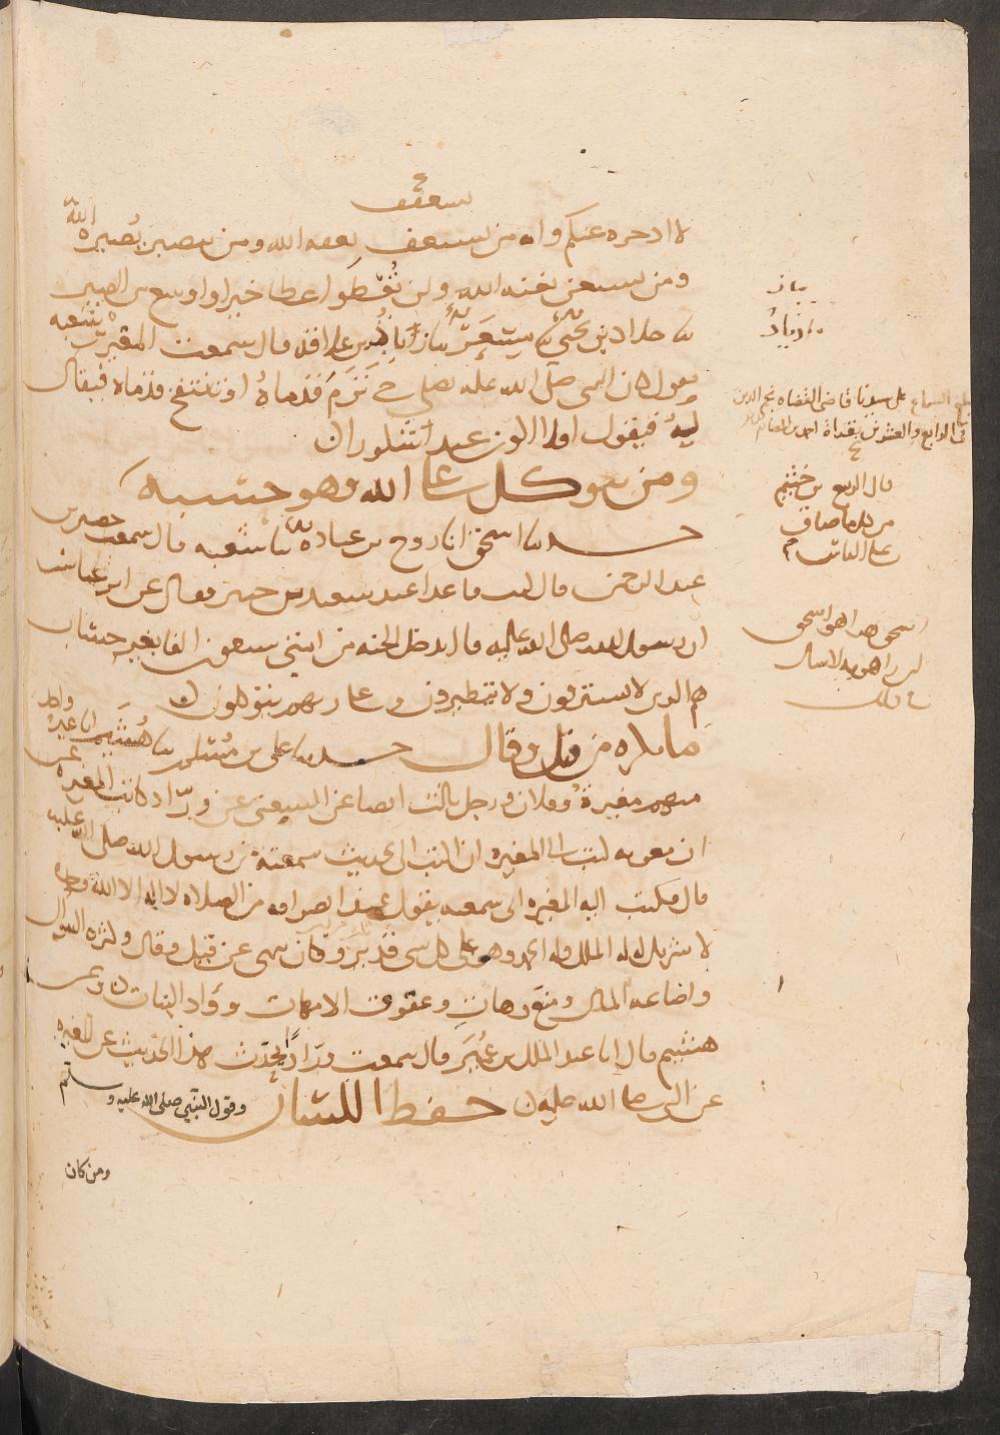 يستعفف
لا ادخره عنكم وانه من يستعف يعفه الله ومن يتصبر يُصبره الله
ومن يستغن يغنه الله ولن تُعْطَوا عطا خيرا واوسع من الصبر
نا خلاد بن يحيى نا مِسْعَر نا زياد بن علاقة قال سمعت المغيرة بن شعبة
يقول كان النبي صلى الله عليه يصلي حتى تَرِمَ قدماهُ او تنتفخ قدماه فيقال
لهُ فيقول افلا اكون عبدا شكورا
ومن يتوكل على الله فهو حسبه
حدثنا اسحق انا روح بن عبادة نا شعبه قال سمعت حصين بن
عبد الرحمن قال كنت قاعدا عند سعيد بن جبير فقال عن ابن عباس
ان رسول الله صلى الله عليه قال يدخل الجنه من امتي سبعون الفا بغير حساب
هم الذين لا يسترقون ولا يتطيرون وعلى ربهم يتوكلون
ما يكره من قيل وقال حدثنا علي بن مُسْلم نا هُشَيم انا غير واحد
منهم مغيرةُ وفلان ورجل ثالث ايضا عن الشعبي عن ورّاد كاتب المغيره
ان معويه كتب الى المغيره ان اكتب الي بحديث سمعته من رسول الله صلى الله عليه
قال فكتب اليه المغيره اني سمعته يقول عند انصرافه من الصلاه لا اله الا الله وحده
لا شريك له له الملك وله الحمد وهو على كل شي قدير وكان ينهى عن قيل وقال وكثرة السوال
واضاعه المال ومنع وهاتِ وعقوق الامهات ووَاد البنات وعن
هشيم قال انا عبد الملك بن عُمَير قال سمعت ورّادًا يحدّث هذا الحديث عن المغيره
عن النبي صلى الله عليه حفظ اللسان وقول النبي صلى الله عليه وسلم
ومن كان
بلغ السماع على سيدنا قاضي القضاه نجم الدين
في الرابع والعشرين بقراة احمد
قال الربيع بن خُثَيْم
من كل ما ضاق
على الناس
اسحق هذا هو اسحق